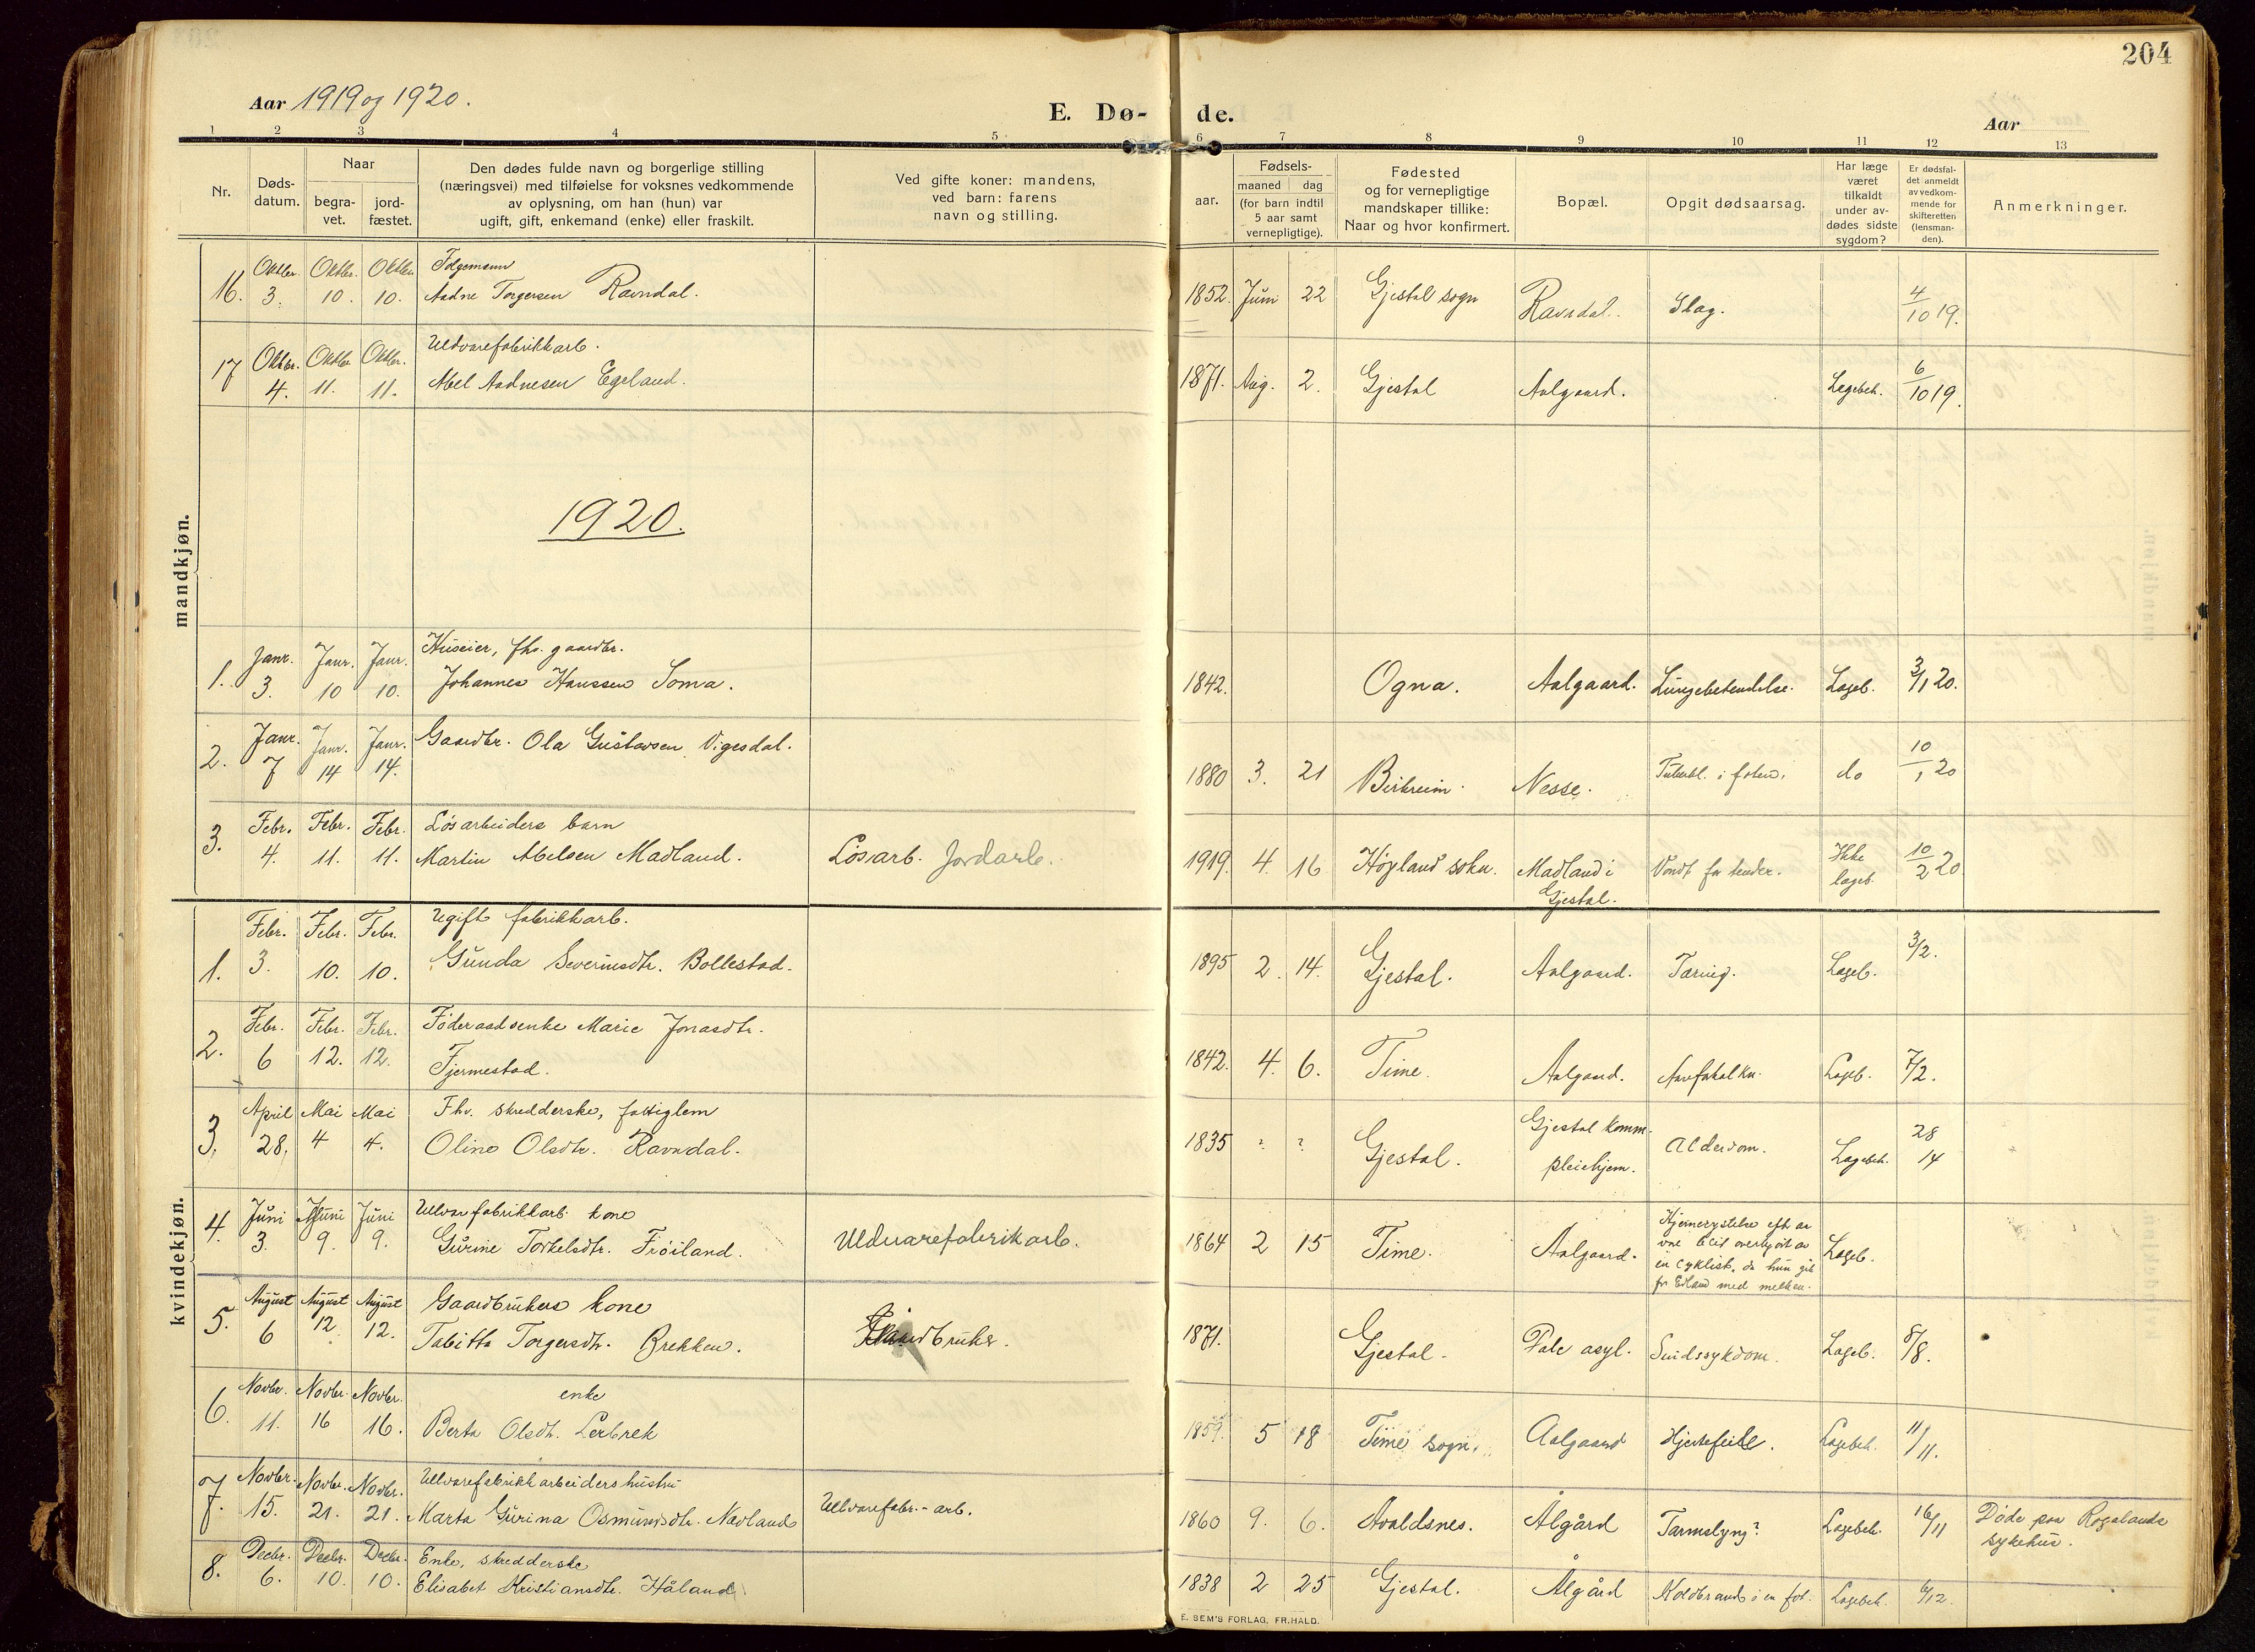 204
Aar 1919 og 1920.
E. Dø- de.
Aar
1 2 3 4 5 6 7 8 9 10 11 12 13
Nr.
Døds-
datum.
Naar
begra-
vet.
jord-
fæstet.
Den dødes fulde navn og borgerlige stilling
(næringsvei) med tilføielse for voksnes vedkommende
av oplysning, om han (hun) var
ugift, gift, enkemand (enke) eller fraskilt.
Ved gifte koner: mandens,
ved barn: farens
navn og stilling.
Fødsels-
aar.
maaned dag
(for barn indtil
5 aar samt
vernepligtige).
Fødested
og for vernepligtige
mandskaper tillike:
Naar og hvor konfirmert.
Bopæl.
Opgit dødsaarsag.
Har læge
været
tilkaldt
under av-
dødes sidste
sygdom?
Er dødsfal-
det anmeldt
av vedkom-
mende for
skifteretten
(lensman-
den).
Anmerkninger.
mandkjøn.
Oktbr. Oktbr. Oktbr. Folgemann
16. 3. 10. 10. Aadne Torgersen Ravndal. 1852. Juni 22 Gjestal sogn Ravndal. Slag. 4/10 19.
Oktbr. Oktbr. Oktbr. Uldvarefabrikkarb.
17 4. 11. 11. Abel Aadnesen Egeland. 1871. Aug. 2. Gjestal Aalgaard. Lægebeh. 6/10 19.
1920.
Janr. Janr. Janr. Huseier, fhv. gaardbr.
1. 3. 10 10. Johannes Hanssen Soma. 1842. Ogna. Aalgaard. Lungebetendelse. Lægeb. 3/1 20.
Janr. Janr. Janr. Gaardbr. Ola Gustavsen Vigesdal.
2. 7 14 14. 1880 3. 21 Birkreim. Nesse. Tuberkl. i foten. do 10/1 20
Febr. Febr. Febr. Løsarbeiders barn
3. 4. 11. 11. Martin Abelsen Madland. Løsarb. Jordarb. 1919. 4. 16 Høyland sokn. Madland i Gjestal. Vondt for tender. Ikke lægeb. 10/2 20.
kvindekjøn.
Febr. Febr. Febr. Ugift fabrikkarb.
1. 3. 10. 10. Gunda Severinsdtr. Bollestad. 1895 2. 14. Gjestal. Aalgaard. Tæring. Lægeb. 3/2.
Febr. Febr. Febr. Føderaadsenke Marie Jonasdtr.
2. 6 12. 12. Fjermestad. 1842. 4. 6. Time. Aalgaard. Lægeb. 7/2.
April Mai Mai Fhv. skredderske, fattiglem
3. 28. 4 4. Oline Olsdtr. Ravndal. 1835 ? ? Gjestal. Gjestal komm. pleiehjem. Alderdom. Lægebeh. 28 14
Juni Juni Juni Ullvarefabrikkarb. kone
4. 3. 9. 9. Gurine Torkelsdtr. Frøiland. Uldvarefabrikarb. 1864 2 15 Time. Aalgaard. Hjernerystelse eft. at
være blit overkjørt av
en cyklist, da hun gik
fr Edland med melken. Lægeb.
August August August Gaardbrukers kone
5. 6 12. 12. Tabitta Torgersdtr. Brekken. Gaardbruker. 1871. Gjestal. Dale asyl. Sindssykdom. Lægeb. 8/8.
Novbr. Novbr. Novbr. enke
6. 11. 16 16. Berta Olsdtr. Lerbrek 1859. 5 18 Time sogn. Aalgaard Hjertefeile. Lægebeh. 11/11.
Novbr. Novbr. Novbr. Ullvarefabrikkarbeiders hustru
7. 15. 21. 21. Marta Gurina Osmundsdtr. Navland Ullvarefabr.-arb. 1860 9. 6. Avaldsnes. Ålgård Tarmslyng? Lægebeh. 16/11 Døde paa Rogalands
sykehus.
Decbr. Decbr. Decbr. Enke, skredderske
8. 6. 10. 10. Elisabet Kristiansdtr. Håland 1838 2 25 Gjestal. Ålgård Koldbrand i en fot. Lægebeh. 6/12.
E. SEM'S FORLAG, FR.HALD.